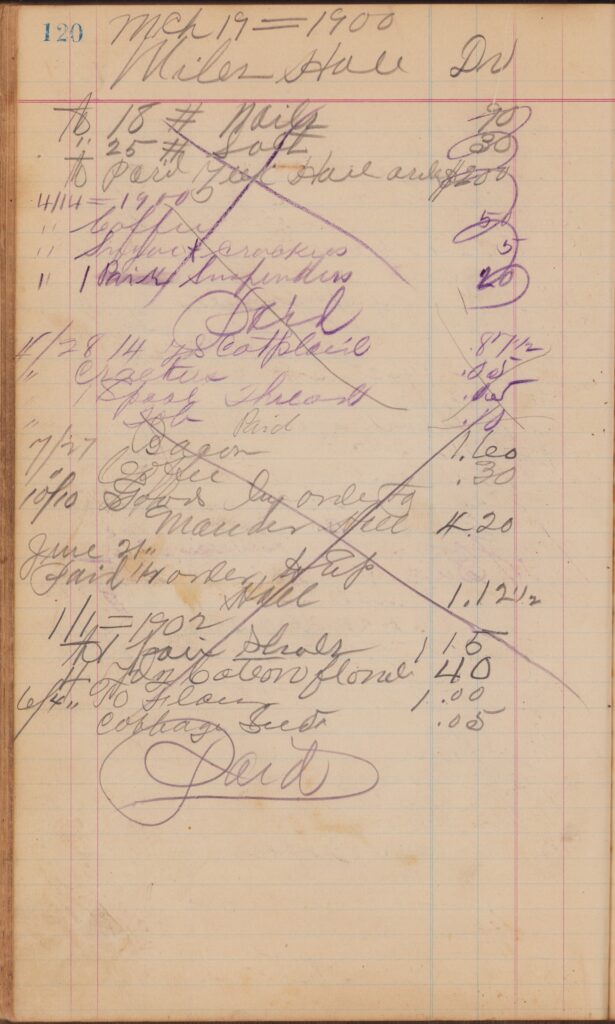 120
Mch 19 = 1900
Miles Hall Dr
To 18 # Nails 90
" 25 # Salt 30
to Paid Hall order $2.00
4/14 = 1900
" Coffee 50
" crackers 5
" 1 Pair Suspenders 20
Paid
4/28 14 yds Cotplaid .87 1/2
" Crackers .05
" 1 Spool Thread .05
.10
Paid
7/27 Bacon 1.60
" Coffee .30
10/10 Goods by order to
Hall 4.20
June 21"
Paid order
Hall 1.12 1/2
1/1 = 1902
To 1 Pair Shoes 1 15
4 yds Cotton flonel 40
6/4 " To Flour 1.00
Cobbage Seed .05
Paid